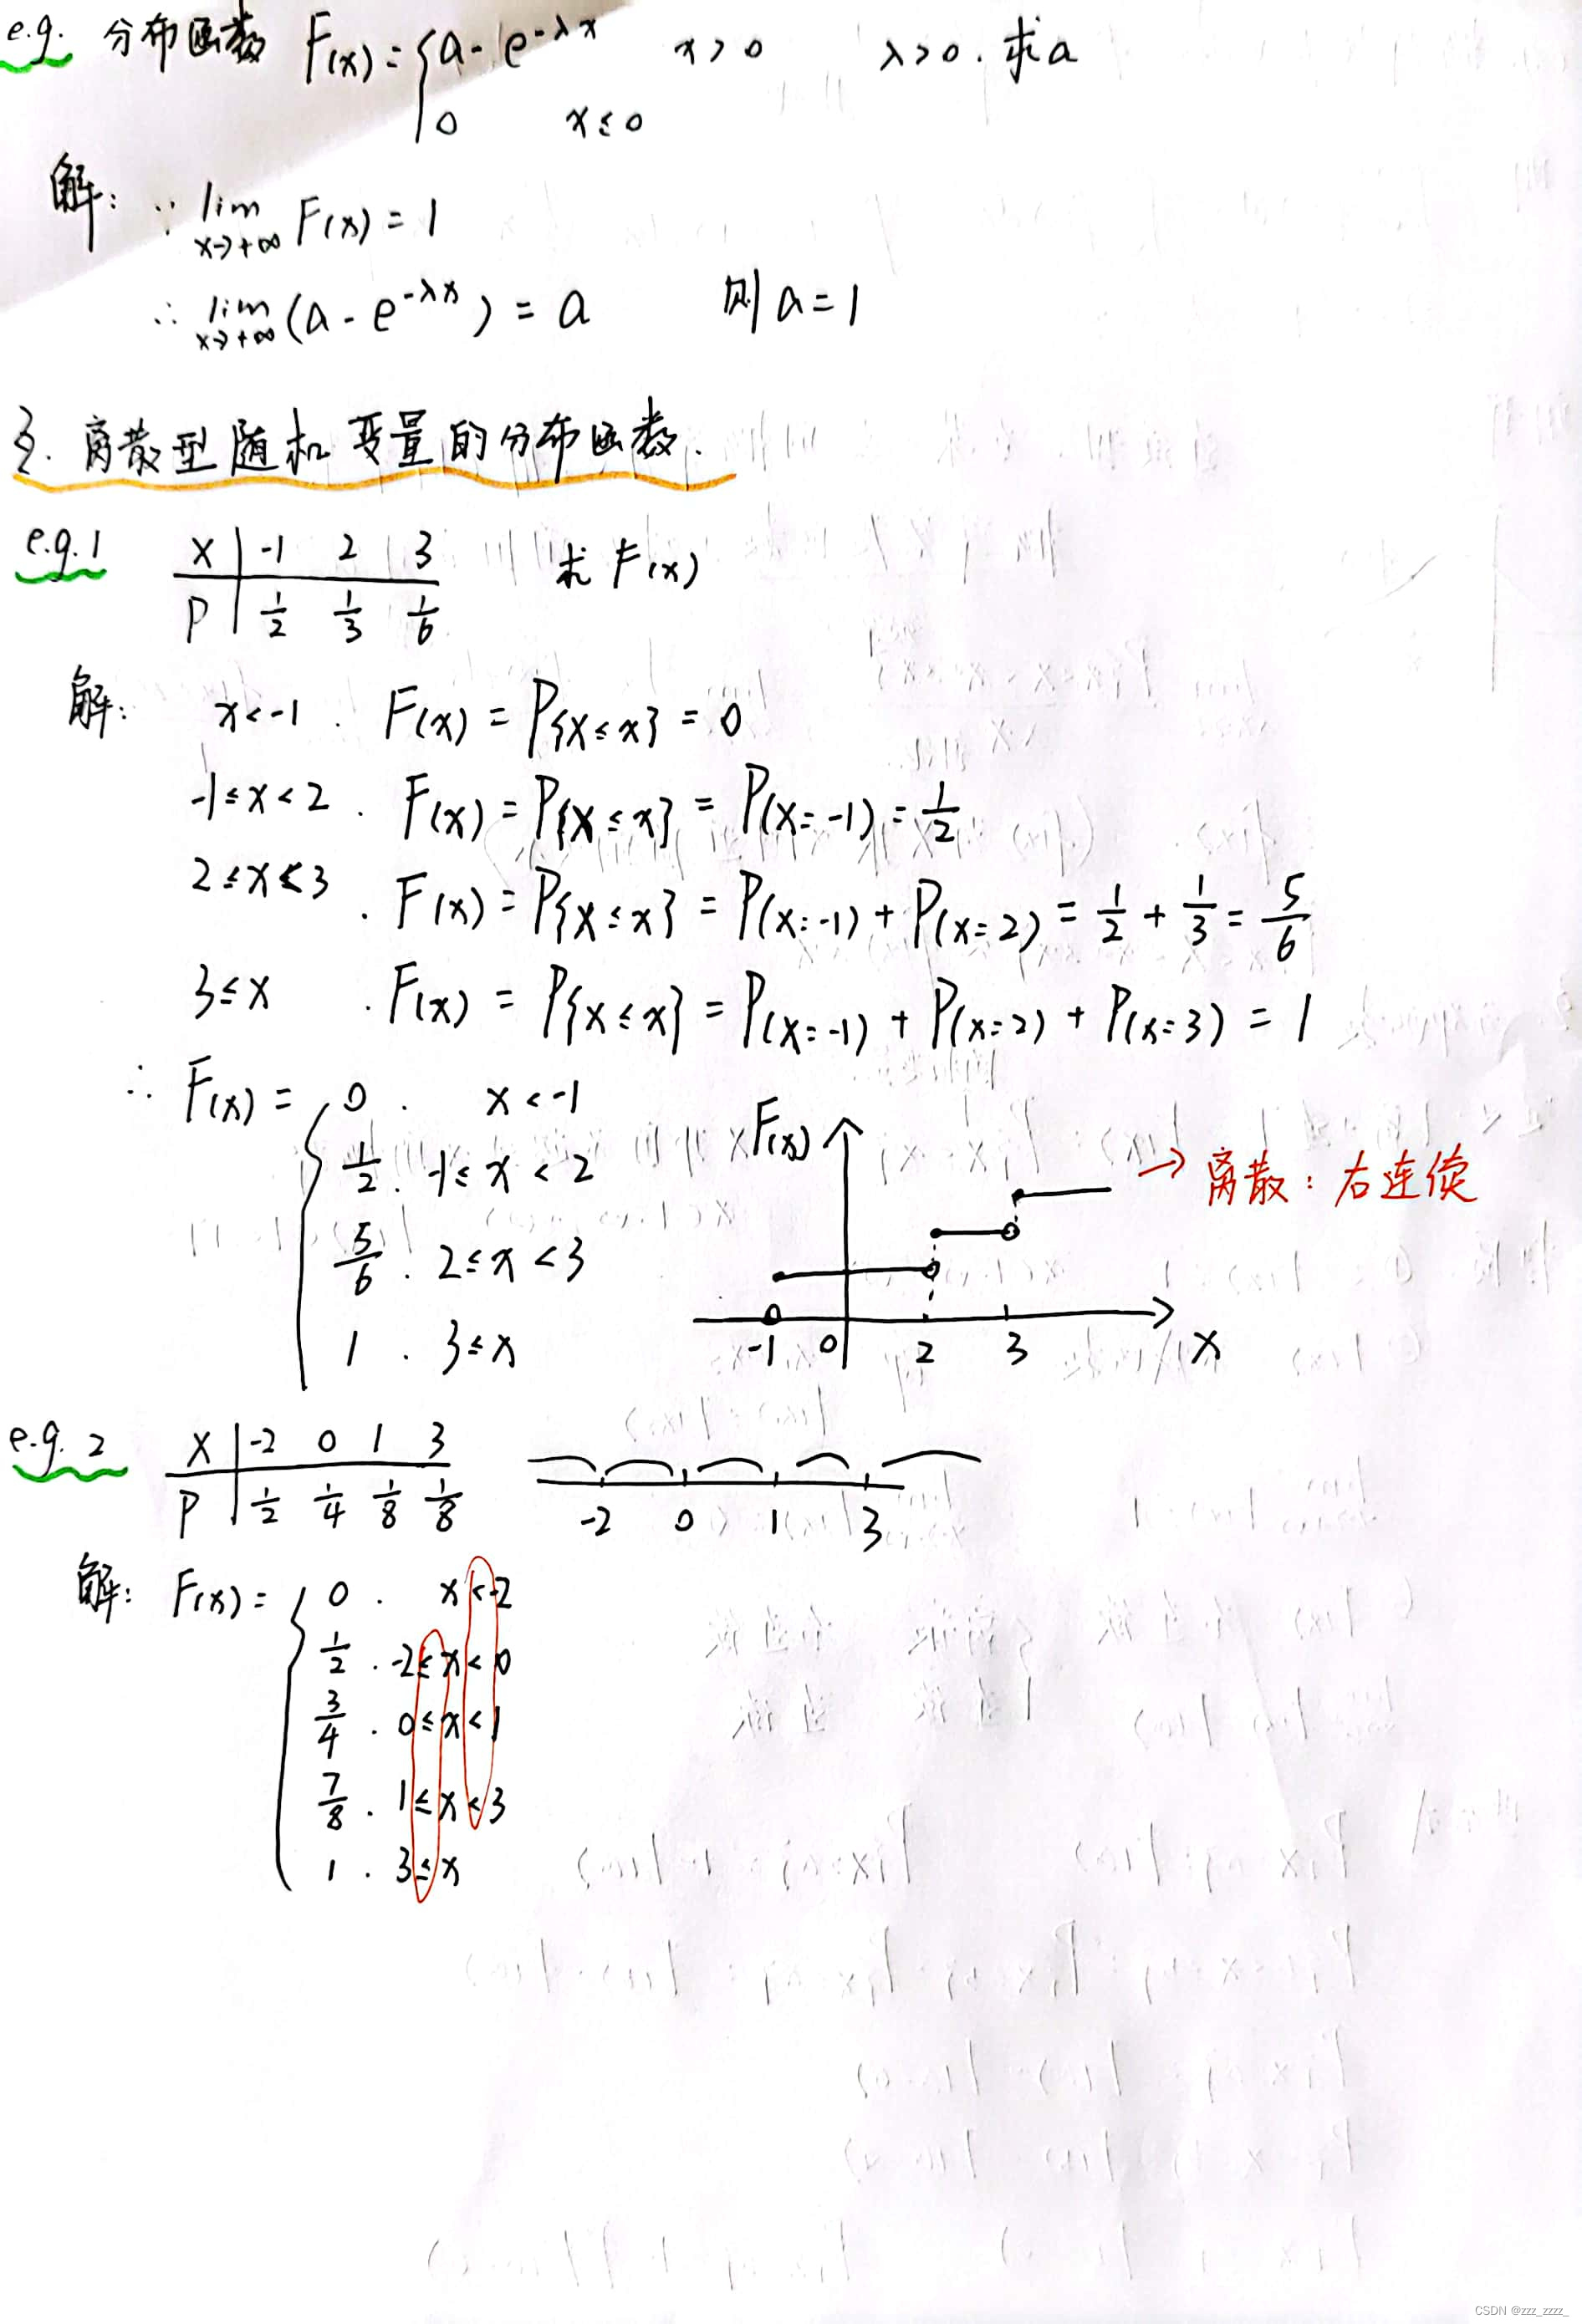 e.g. 分布函数 F(x)={a-e^{-λx} x>0 λ>0. 求a
0 x≤0
解: ∵ lim_{x→+∞} F(x)=1
∴ lim_{x→+∞} (a-e^{-λx})=a 则a=1
3. 离散型随机变量的分布函数.
e.g.1 X -1 2 3 求F(x)
P 1/2 1/3 1/6
解: x<-1. F(x)=P{X≤x}=0
-1≤x<2. F(x)=P{X≤x}=P(X=-1)=1/2
2≤x<3. F(x)=P{X≤x}=P(X=-1)+P(X=2)=1/2+1/3=5/6
3≤x. F(x)=P{X≤x}=P(X=-1)+P(X=2)+P(X=3)=1
∴ F(x)={0. x<-1
1/2. -1≤x<2
5/6. 2≤x<3
1. 3≤x
F(x)
→离散:右连续
-1 0 2 3 x
e.g.2 X -2 0 1 3
P 1/2 1/4 1/8 1/8
-2 0 1 3
解: F(x)={0. x<-2
1/2. -2≤x<0
3/4. 0≤x<1
7/8. 1≤x<3
1. 3≤x
CSDN @zzz_zzzz_